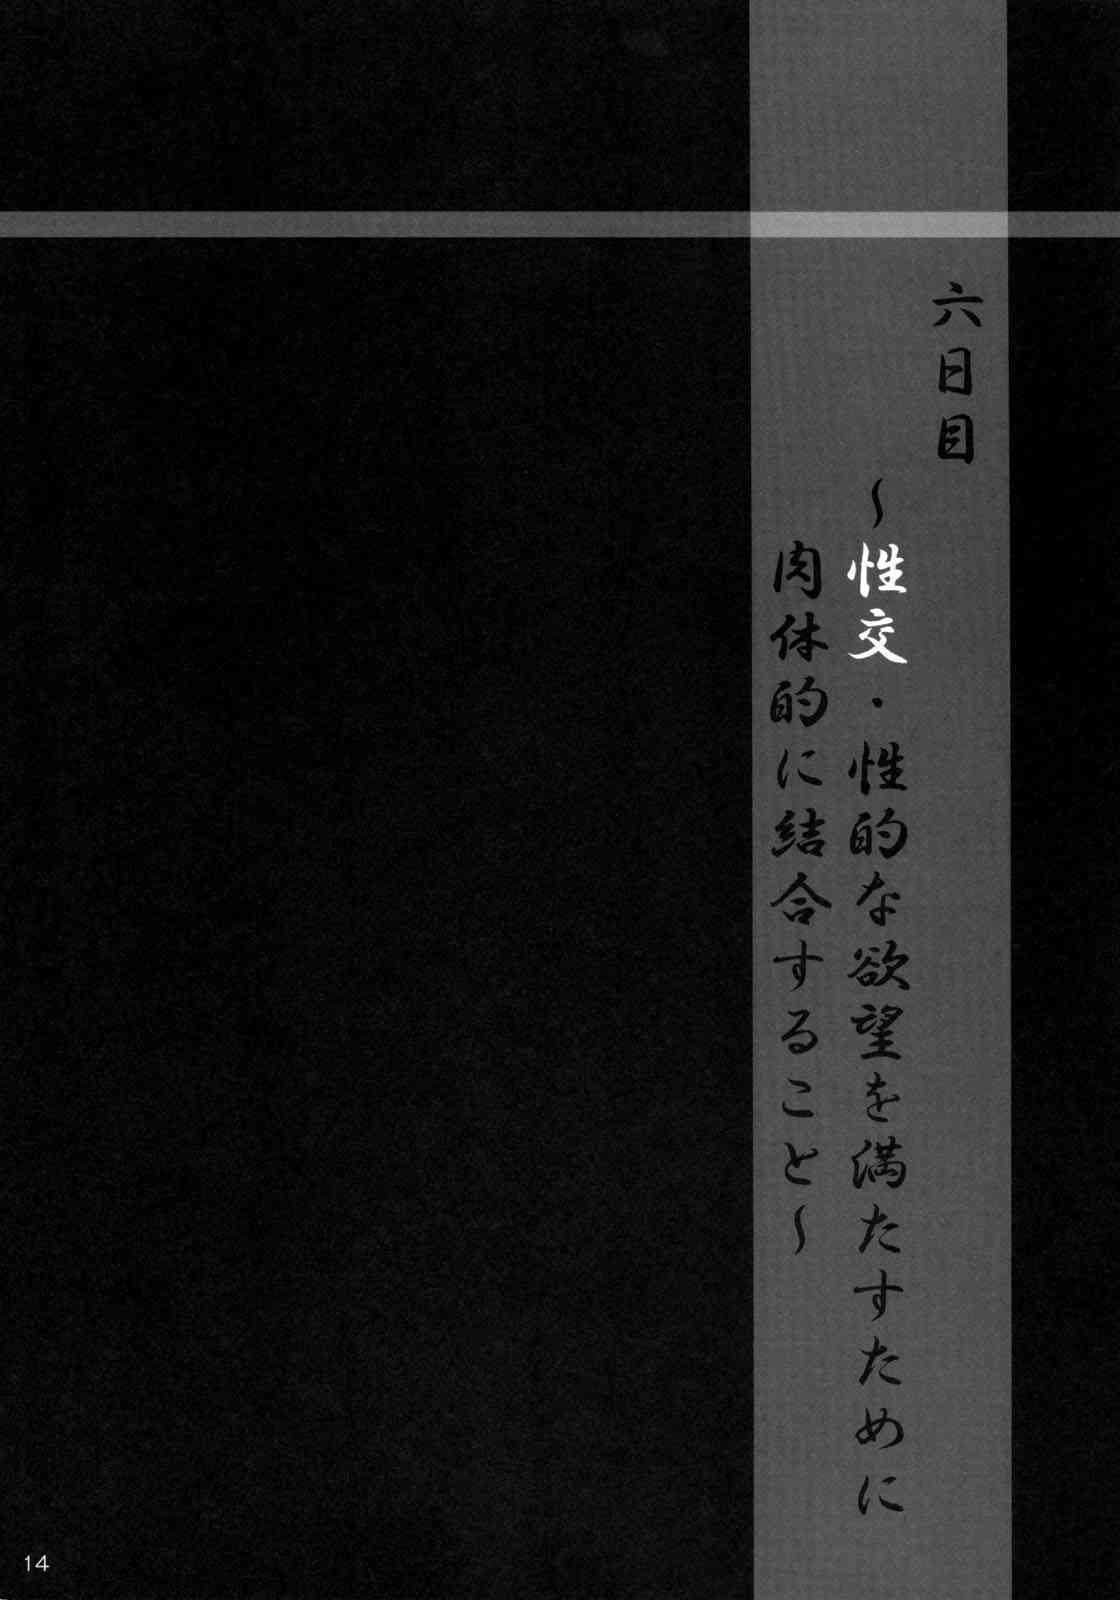 六日目
〜性交・性的な欲望を満たすために
肉体的に結合すること〜
14